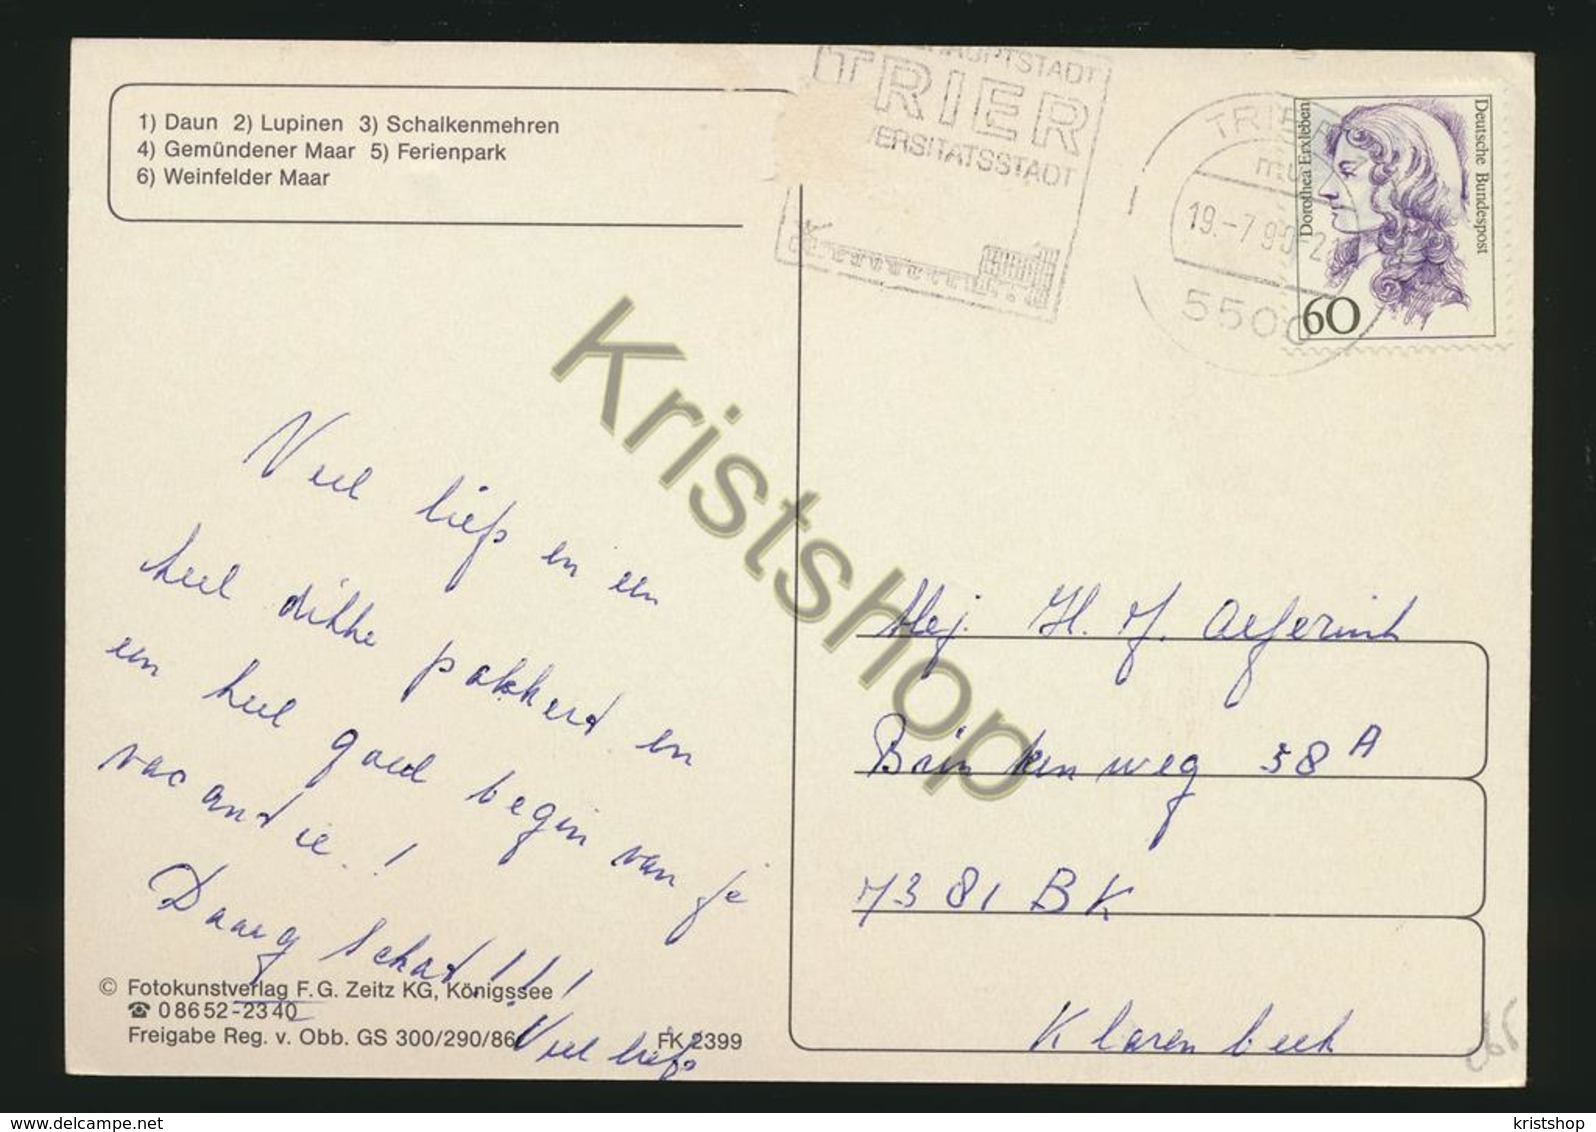 1) Daun 2) Lupinen 3) Schalkenmehren
4) Gemündener Maar 5) Ferienpark
6) Weinfelder Maar
HAUPTSTADT
TRIER
VERSITÄTSSTADT
TRIER
19.-7.90-21
5500
Deutsche Bundespost
Dorothea Erxleben
60
Veel liefs en een
heel dikke pakkerd en
een heel goed begin van je
vacantie.!
Daaag Schat!!!
Veel liefs
© Fotokunstverlag F.G. Zeitz KG, Königssee
☎ 08652-2340
Freigabe Reg. v. Obb. GS 300/290/86
FK 2399
Mej. H. J. Aeferink
Brinkenweg 38 A
7381 BK
Klarenbeek
Kristshop
www.delcampe.net
kristshop